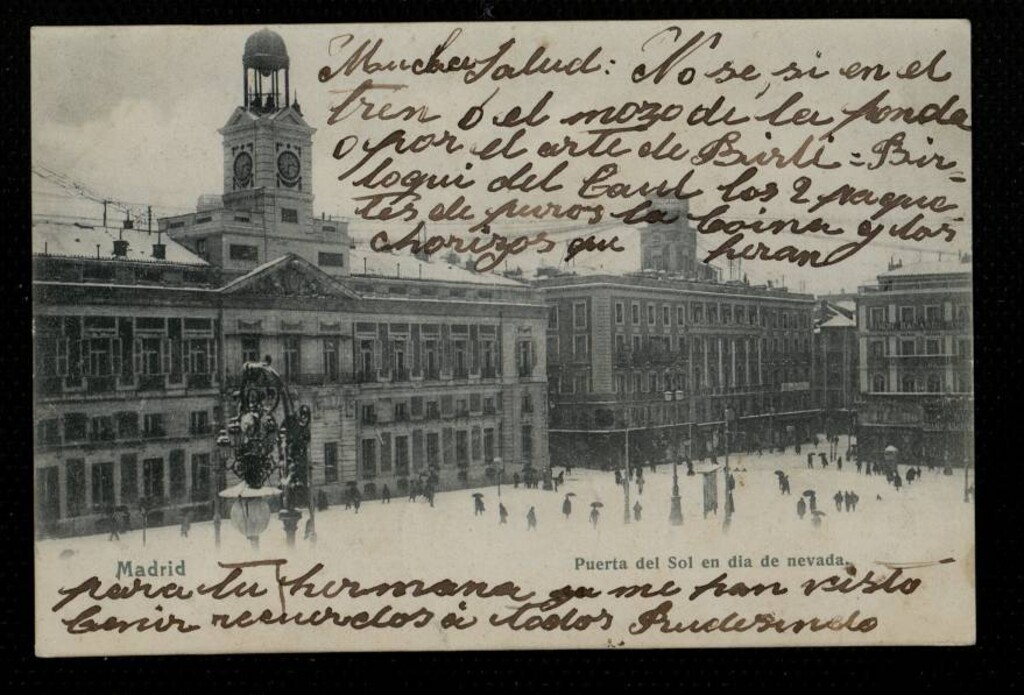 Mucha Salud: No se, si en el
tren ó el mozo de la fonda
o por el arte de Birli = Bir-
loqui del Baul los 2 paque
tes de puros la boina y los
chorizos que heran
Madrid
Puerta del Sol en dia de nevada.
para tu hermana que me han visto
benir recuerdos á todos Rudesindo